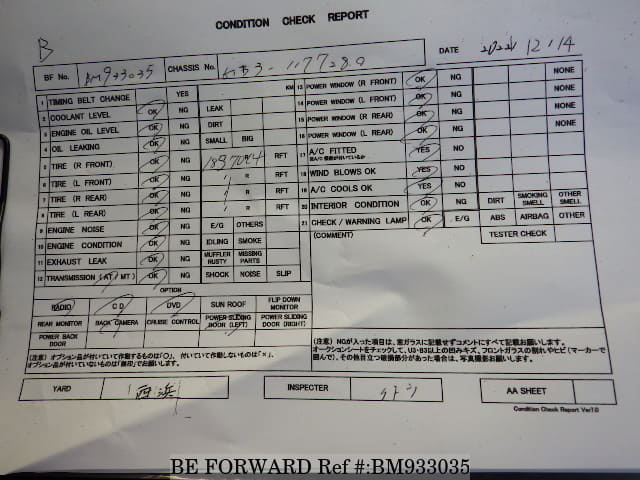 CONDITION CHECK REPORT
B
BF No. BM933035 CHASSIS No. DATE 12/14
1 TIMING BELT CHANGE YES KM
2 COOLANT LEVEL OK NG LEAK
3 ENGINE OIL LEVEL OK NG DIRT
4 OIL LEAKING OK NG SMALL BIG
5 TIRE (R FRONT) OK NG RFT
6 TIRE (L FRONT) OK NG R RFT
7 TIRE (R REAR) OK NG R RFT
8 TIRE (L REAR) OK NG R RFT
9 ENGINE NOISE OK NG E/G OTHERS
10 ENGINE CONDITION OK NG IDLING SMOKE
11 EXHAUST LEAK OK NG MUFFLER RUSTY MISSING PARTS
12 TRANSMISSION (AT/MT) OK NG SHOCK NOISE SLIP
OPTION
RADIO CD DVD SUN ROOF FLIP DOWN MONITOR
REAR MONITOR BACK CAMERA CRUISE CONTROL POWER SLIDING DOOR (LEFT) POWER SLIDING DOOR (RIGHT)
POWER BACK DOOR
(注意) オプション品が付いていて作動するものは「○」、付いていて作動しないものは「×」、
オプション品が付いていないものは「無印」でお願いします。
13 POWER WINDOW (R FRONT) OK NG NONE
14 POWER WINDOW (L FRONT) OK NG NONE
15 POWER WINDOW (R REAR) OK NG NONE
16 POWER WINDOW (L REAR) OK NG NONE
17 A/C FITTED YES NO
18 WIND BLOWS OK YES NO
19 A/C COOLS OK YES NO
20 INTERIOR CONDITION OK NG DIRT SMOKING SMELL OTHER SMELL
21 CHECK/WARNING LAMP OK E/G ABS AIRBAG OTHER
(COMMENT) TESTER CHECK
(注意) NGが入った項目は、窓ガラスに記載せずコメントにすべて記載お願します。
オークションシートをチェックして、U3・B3以上の凹みキズ、フロントガラスの割れやヒビ(マーカーで
囲んで)、その他目立つ破損部分があった場合は、写真撮影お願いします。
YARD 西浜 INSPECTER AA SHEET
Condition Check Report Ver1.0
BE FORWARD Ref #:BM933035